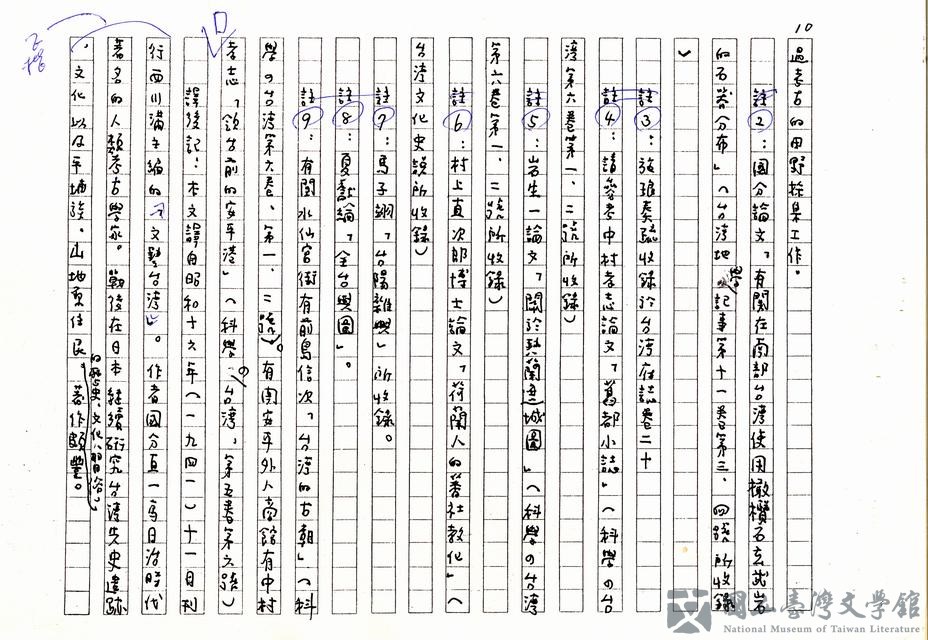 10
過考古的田野採集工作。
註②：國分論文，「有關在南部台灣使用橄欖石玄武岩
的石器分布」（台灣地學記事第十一卷第三、四號所收錄
）
註③：施琅奏疏收錄於台灣府誌卷二十
註④：請參考中村孝志論文，「舊部小誌」（科學の台
灣第六卷第一、二號所收錄）
註⑤：岩生一論文，「關於熱蘭遮城圖」（科學の台灣
第六卷第一、二號所收錄）
註⑥：村上直次郎博士論文，「荷蘭人的蕃社教化」（
台灣文化史說所收錄）
註⑦：馬子翊，「台陽雜興」所收錄。
註⑧：夏獻綸，「全台輿圖」。
註⑨：有關水仙宮街有前島信次，「台灣的古朝」（科
學の台灣第六卷、第一、二號）。有關安平外人商館有中村
孝志，「領台前的安平港」（科學の台灣，第五卷第六號）
譯後記：本文譯自昭和十六年（一九四一）十一月刊
行西川滿主編的《文藝台灣》。作者國分直一為日治時代
著名的人類考古學家。戰後在日本繼續研究台灣先史遺跡
、文化以及平埔族、山地原住民的歷史、文化、習俗，著作頗豐。
國立臺灣文學館
National Museum of Taiwan Literature